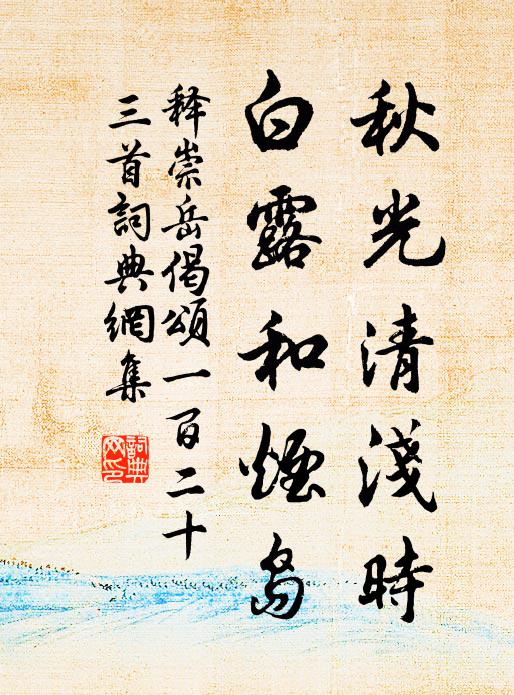 秋光清淺時
白露和煙島
释崇岳偈頌一百二十
三首詞典網集